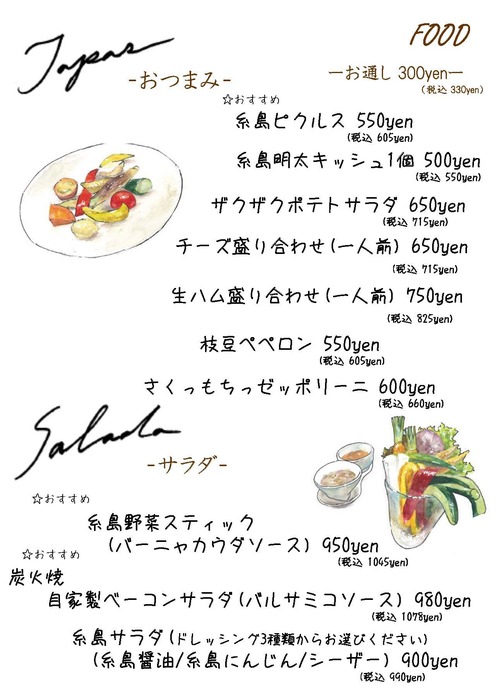 FOOD
Tapas
-おつまみ-
ーお通し 300yenー
(税込 330yen)
☆おすすめ
糸島ピクルス 550yen
(税込 605yen)
糸島明太キッシュ1個 500yen
(税込 550yen)
ザクザクポテトサラダ 650yen
(税込 715yen)
チーズ盛り合わせ(一人前) 650yen
(税込 715yen)
生ハム盛り合わせ(一人前) 750yen
(税込 825yen)
枝豆ペペロン 550yen
(税込 605yen)
さくっもちっゼッポリーニ 600yen
(税込 660yen)
Salada
-サラダ-
☆おすすめ
糸島野菜スティック
(バーニャカウダソース) 950yen
(税込 1045yen)
☆おすすめ
炭火焼
自家製ベーコンサラダ(バルサミコソース) 980yen
(税込 1078yen)
糸島サラダ(ドレッシング3種類からお選びください)
(糸島醤油/糸島にんじん/シーザー) 900yen
(税込 990yen)